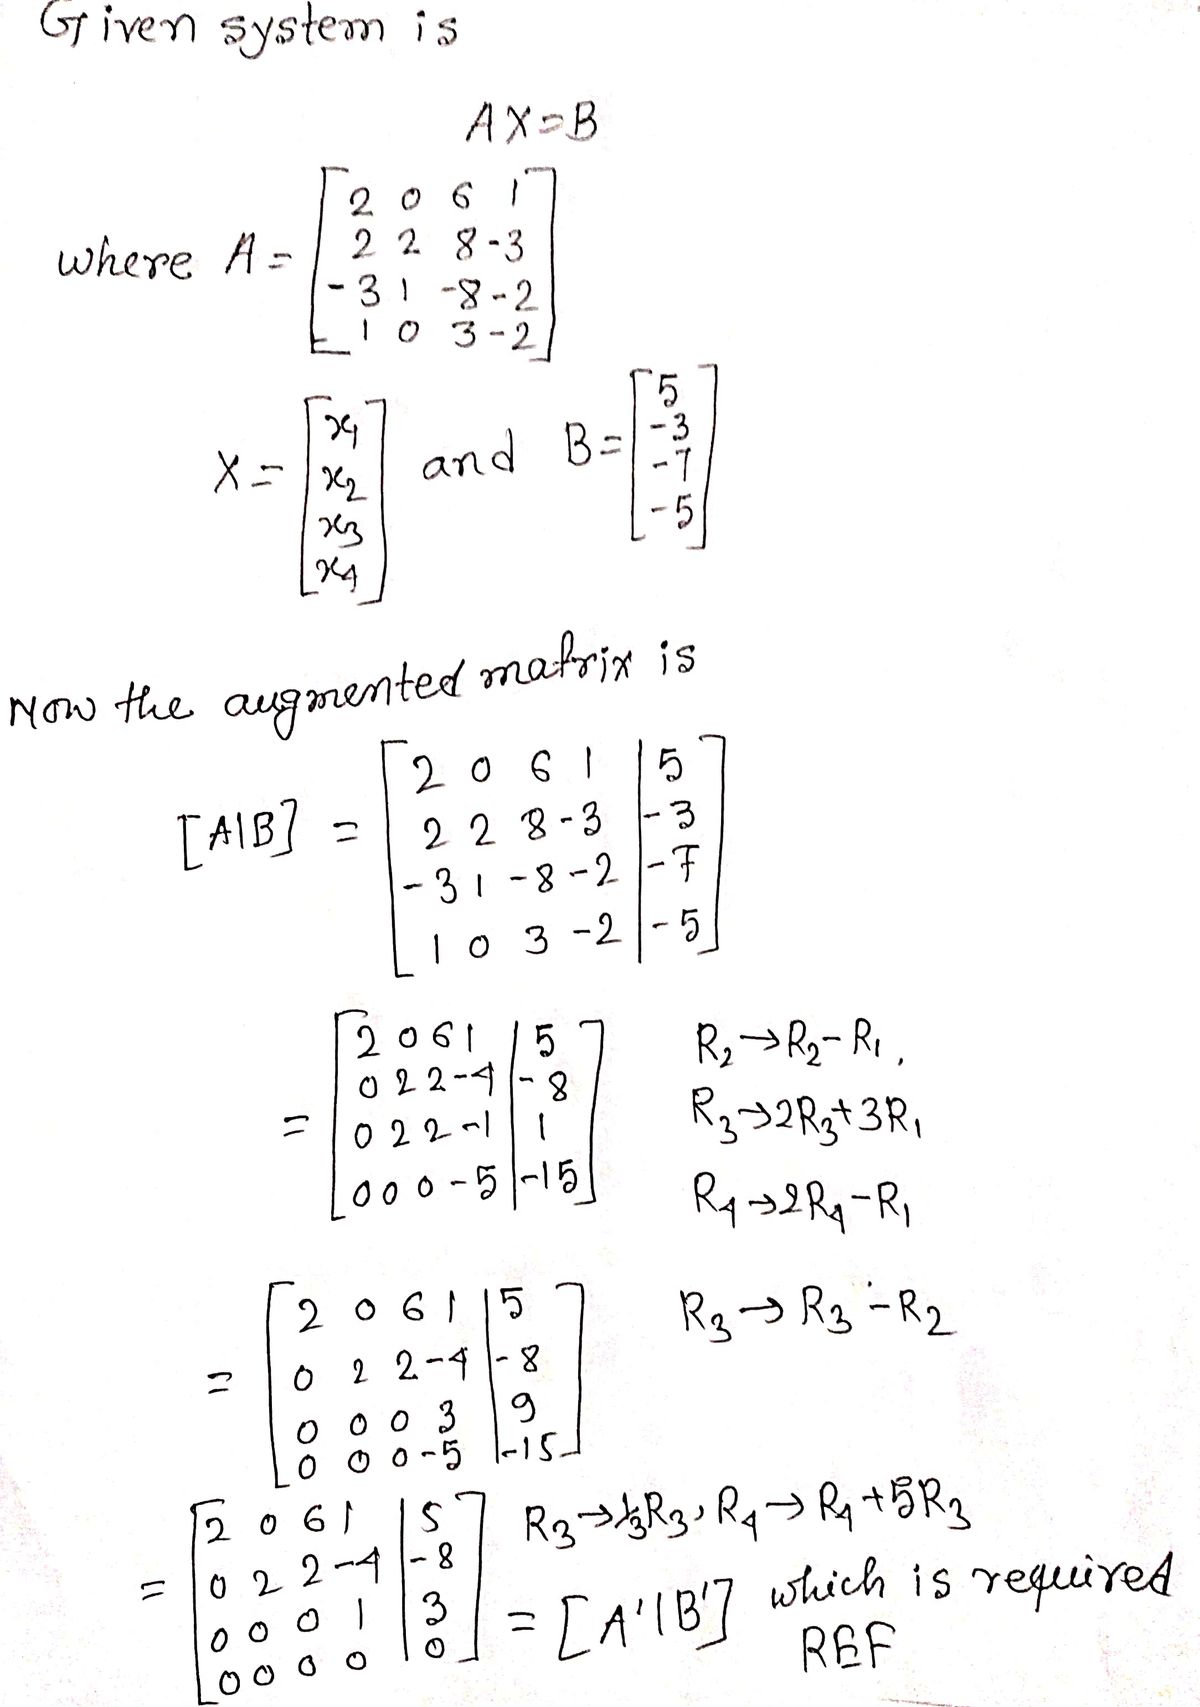 Given system is
AX=B
where A = [2 0 6 1
2 2 8 -3
-3 1 -8 -2
1 0 3 -2]
X = [x1
x2
x3
x4] and B = [5
-3
-7
-5]
Now the augmented matrix is
[A|B] = [2 0 6 1 | 5
2 2 8 -3 | -3
-3 1 -8 -2 | -7
1 0 3 -2 | -5]
= [2 0 6 1 | 5
0 2 2 -4 | -8
0 2 2 -1 | 1
0 0 0 -5 | -15]
R2→R2-R1,
R3→2R3+3R1
R4→2R4-R1
= [2 0 6 1 | 5
0 2 2 -4 | -8
0 0 0 3 | 9
0 0 0 -5 | -15]
R3→R3-R2
= [2 0 6 1 | 5
0 2 2 -4 | -8
0 0 0 1 | 3
0 0 0 0 | 0]
R3→1/3R3, R4→R4+5R3
= [A'|B'] which is required
REF